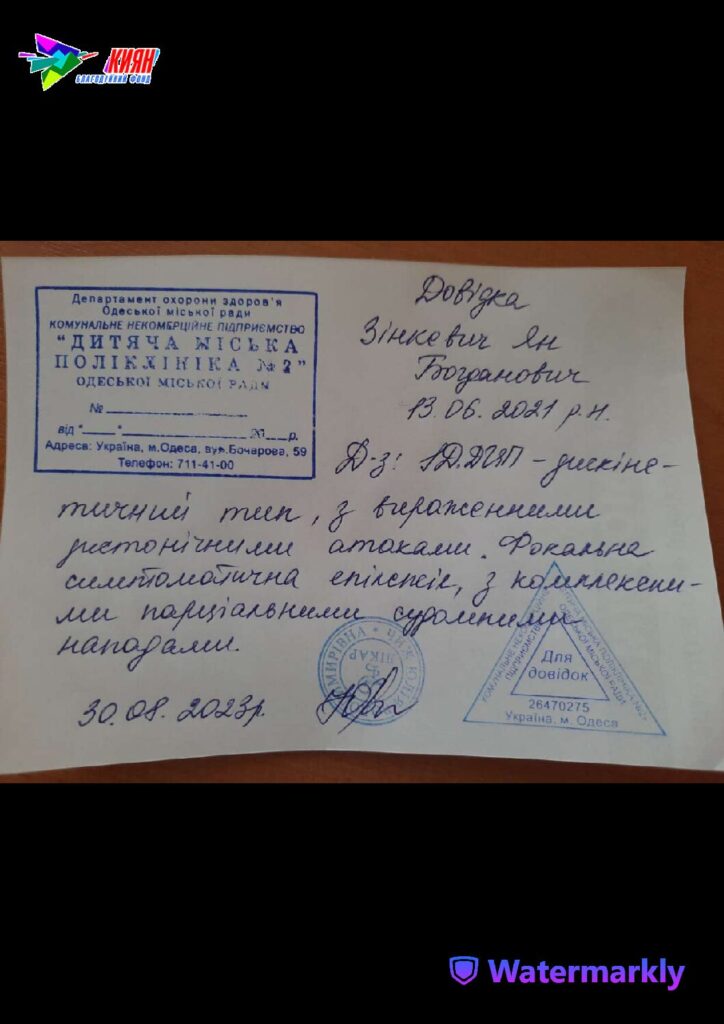 КИЯН
БЛАГОДІЙНИЙ ФОНД
Департамент охорони здоров'я
Одеської міської ради
КОМУНАЛЬНЕ НЕКОМЕРЦІЙНЕ ПІДПРИЄМСТВО
"ДИТЯЧА МІСЬКА
ПОЛІКЛІНІКА №2"
ОДЕСЬКОЇ МІСЬКОЇ РАДИ
№
від "___" ___ 20__р.
Адреса: Україна, м.Одеса, вул.Бочарова, 59
Телефон: 711-41-00
Довідка
Зінкевич Ян
Богданович
13.06.2021 р.н.
Д-з: ДЦП - дискіне-
тичний тип, з вираженними
дистонічними атаками. Фокальна
симптоматична епілепсія, з комплексни-
ми парціальними судомними
нападами.
30.08.2023р.
ЛІКАР
КОМУНАЛЬНЕ НЕКОМЕРЦІЙНЕ
ПІДПРИЄМСТВО
ОДЕСЬКОЇ МІСЬКОЇ РАДИ
Для
довідок
26470275
Україна, м. Одеса
Watermarkly